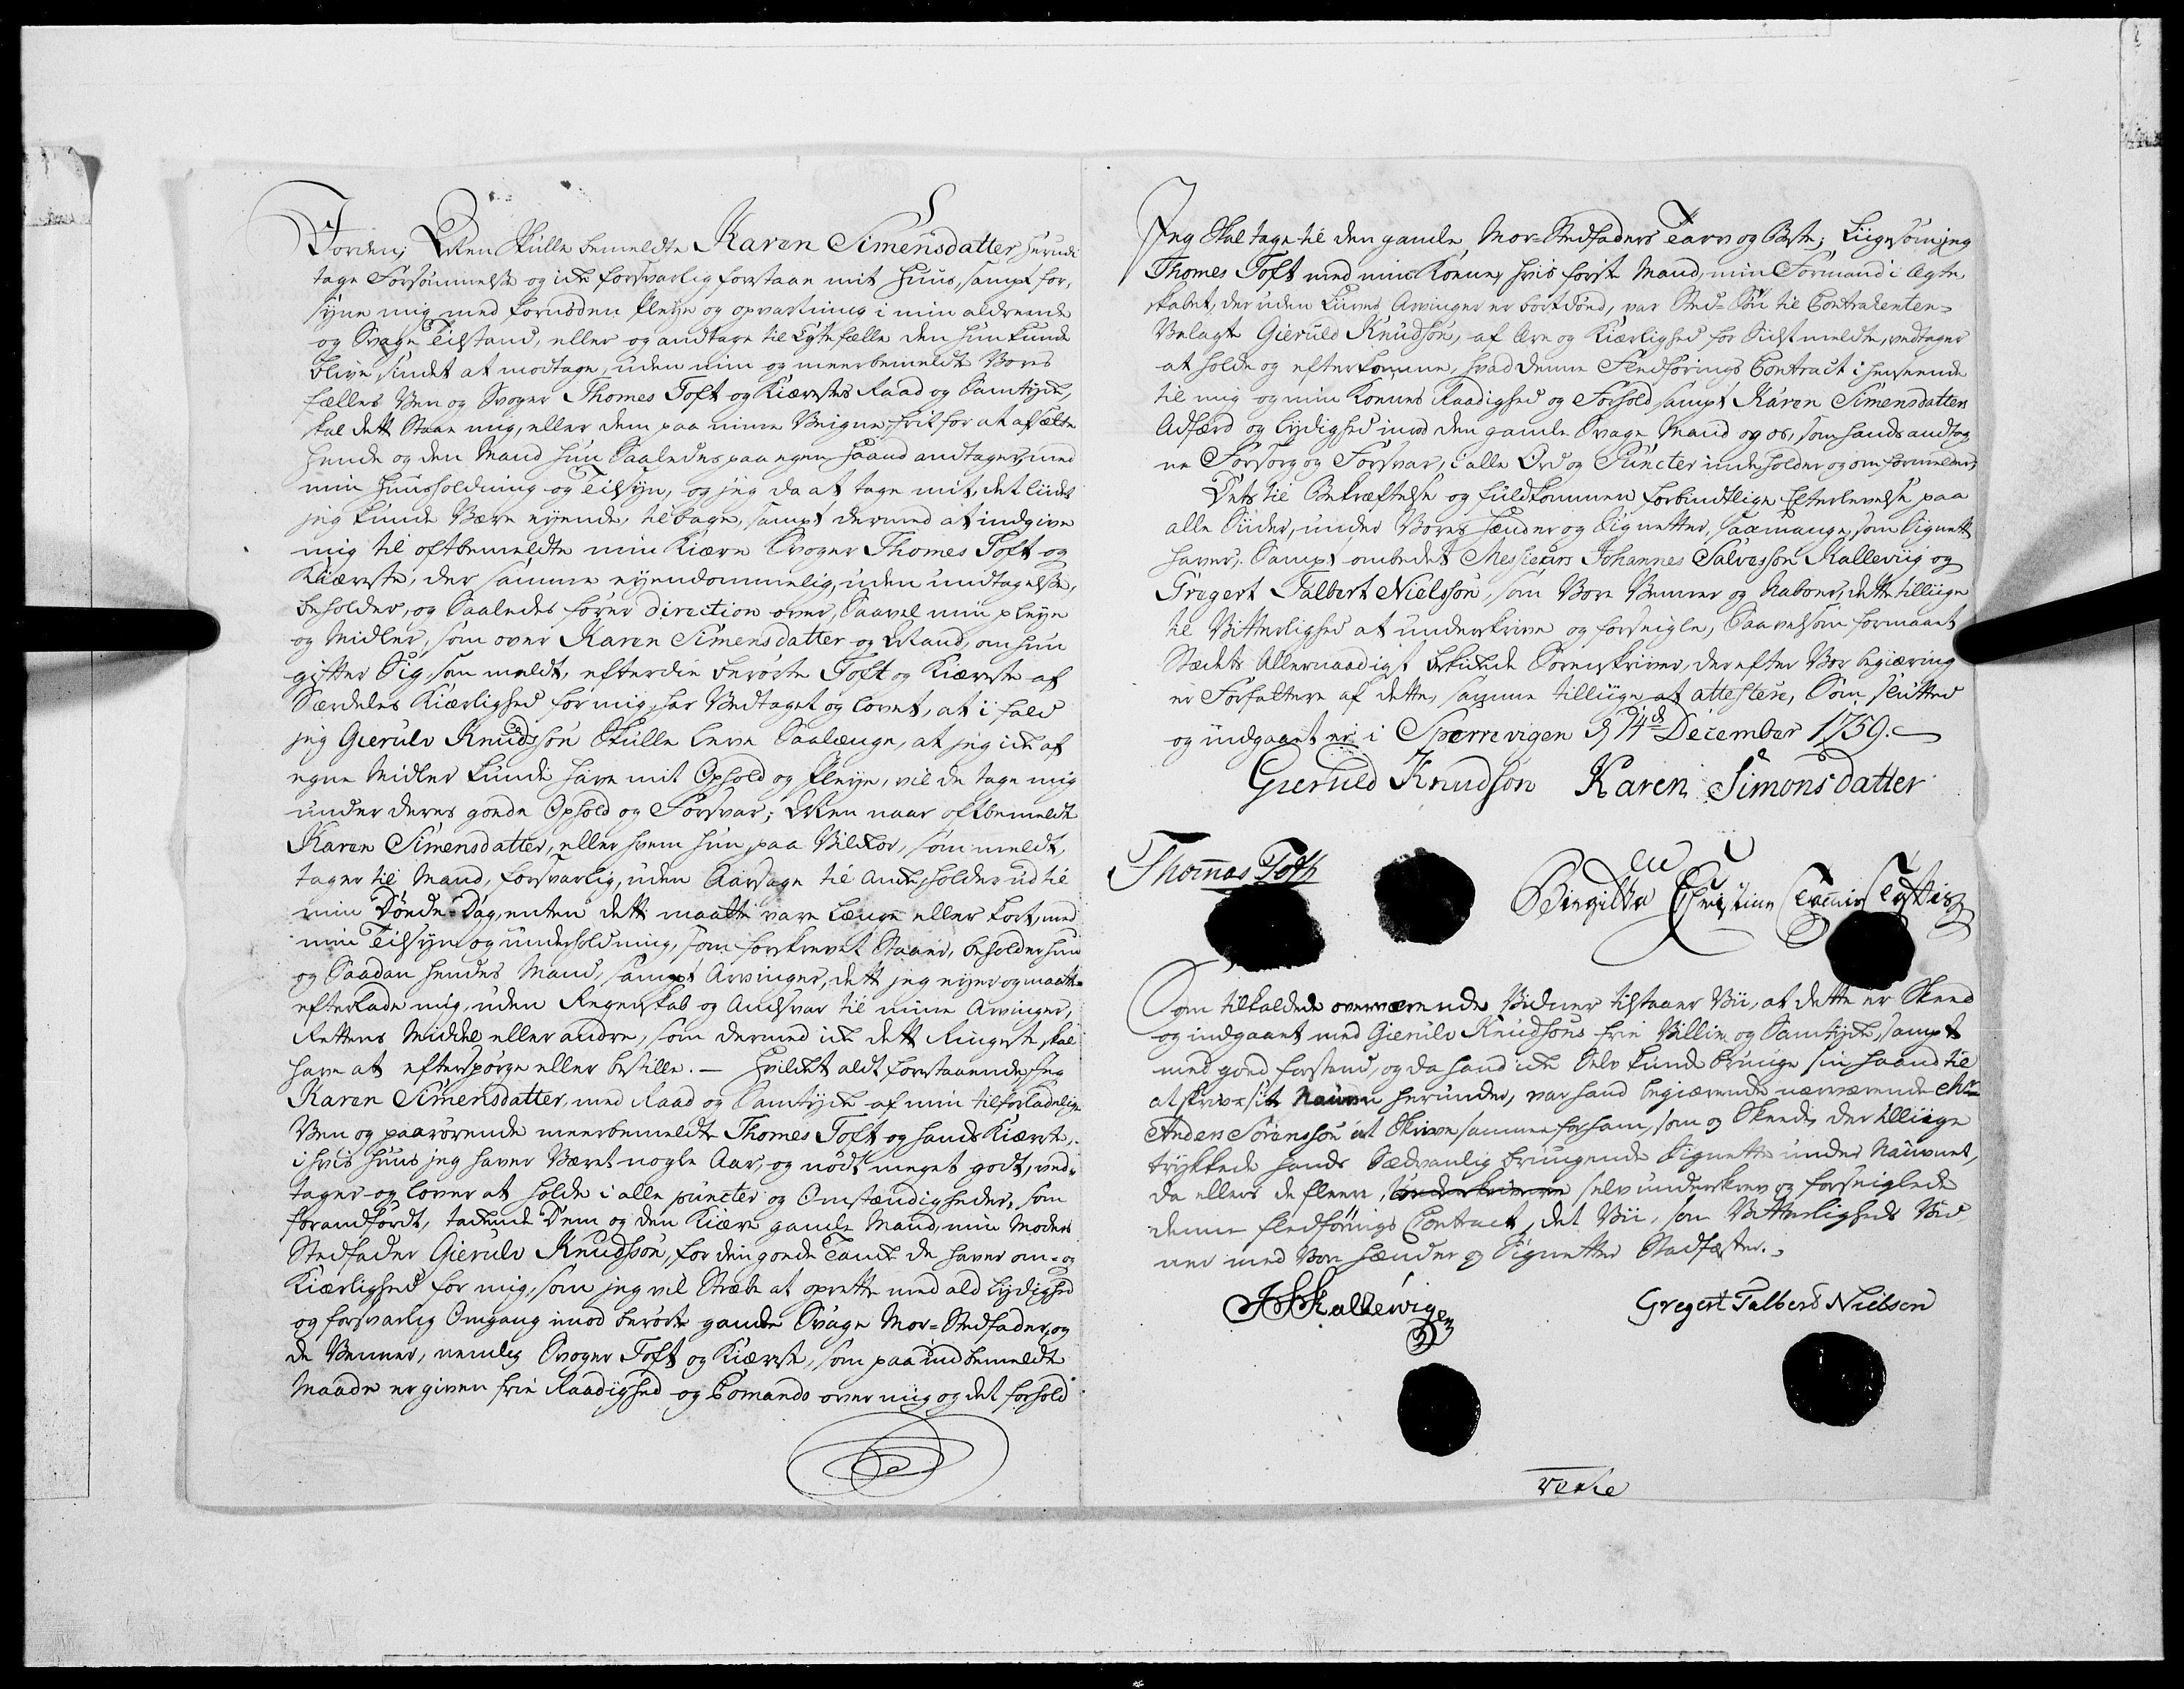 Jorden; Men skulle bemeldte Karen Simensdatter herudi
tage Forsømmelse og icke forsvarlig forestaae mit Huus, sampt for,
syne mig med fornøden Pleye og opvartning i min aldrende
og Svage Tilstand, eller og andtage til Egtefælle den hun kunde
blive sindet at modtage, uden min og meerbemeldte Vores
fælles Ven og Svoger Thomes Toft og Kiærestes Raad og Samtycke,
skal dette Staae mig, eller dem paa mine Veigne frit for at afsætte
hende og den Mand hun Saaledes paa egen Haand andtager, med
min Huusholdning og Tilsyn, og jeg da at tage mit, det liidet
jeg kunde Være eyende, tilbage, sampt dermed at indgive
mig til oftbemeldte min Kiære Svoger Thomes Toft og
Kiæreste, der samme eyendommelig, uden undtagelse,
beholder, og Saaledes fører direction over, Saavel min pleye
og Midler, som over Karen Simensdatter og Mand, om hun
gifter Sig, som meldt, efterdie berørte Toft og Kiæreste af
Særdeles Kiærlighed for mig, har Vedtaget og lovet, at i fald
jeg Gierulv Knudssøn Skulle leve Saalænge, at jeg icke af
egne Midler kunde have mit Ophold og Pleye, vil de tage mig
under deres goede Ophold og Forsvar; Men naar oftbemeldte
Karen Simensdatter, eller hvem hun, paa Vilckor, som meldt,
tager til Mand, forsvarlig, uden Aarsage til Ancke, holder ud til
min Døende-Dag, enten dette maatte vare Længe eller kort, med
min Tilsyn og underholdning, som forskrevet Staaer, beholder hun
og Saadan hendes Mand, sampt Arvinger, dette jeg eyer og maatte
efterlade mig, uden Regenskab og Andsvar til mine Arvinger,
Rettens Middel eller andre, som dermed icke dett Ringeste skal
have at efterspørge eller bestille. — Hvilcket aldt forestaaende, Jeg
Karen Simensdatter, med Raad og Samtycke af min tilforladelige
Ven og paarørende meerbemeldte Thomes Toft og hands Kiæreste,
i hvis Huus jeg haver Været nogle Aar, og nødt meget godt, ved-
tager og lover at holde i alle puncter og Omstændigheder, som
forandførdt, tackende Dem og den Kiære gamle Mand, min Moders
Stedfader Gierulv Knudssøn, for den goede Tancke de haver om- og
Kiærlighed for mig, som jeg vil Stræbe at oprette med ald Lydighed
og forsvarlig Omgang imod berørte gamle Svage Mor-Stedfader, og
de Venner, nemlig Svoger Toft og Kiæreste, som paa indbemeldte
Maade er given frie Raadighed og Comando over mig og det forhold
Jeg Skal tage til den gamle Mor-Stedfaders Tarv og Beste; Ligesom jeg
Thomes Toft med min Konne, hvis første Mand, min Formand i Ægte
skabet, der uden Livs Arvinger er bortdøed, var Sted-Søn til Contrahenten-
Velagte Gieruld Knudsøn, af Ære og Kiærlighed for Sidstmeldte, vedtager
at holde og efterkomme, hvad denne Fledførings Contract i henseende
til mig og min Konnes Raadighed og Forhold sampt Karen Simensdatters
Adfærd og Lydighed imod den gamle Svage Mand og os, som hands andtag
ne Forsorg og Forsvar, i alle Ord og Puncter indeholder og om formelder,
Dets til Bekræftelse og fuldkommen forbindtlige Efterlevelse paa
alle Siider, under Vores Hænder og Signetter, saamange, som Signett
haver, Sampt ombedet Messieurs Johannes Salvessøn Kalleviig og
Gregert Falbert Nielssøn, som Vore Venner og Naboer, dette tilliige
til Vitterlighed at underskrive og forseigle, Saavelsom formaaet
Stedets Allernaadigst beskickede Sorenskriver, der efter Vor begiæring
er Forfattere af dette, samme tilliige at attestere, Som sluttet
og indgaaet er i Spærrevigen d 14de December 1759.
Gieruld Knudsøn Karen Simonsdatter
Thomas Toft
Birgitha Christine Toft
Som tilkaldede overværende Vidner tilstaaer Vii, at dette er Skeed
og indgaaet med Gierulv Knudsøns frie Villie og Samtycke, sampt
med goed forstand, og da hand icke Selv kunde bringe sin Haand til
at skrive sit Naun herunder, var hand begiærende nærværende Mr
Anders Sørenssøn at Skrive samme for ham, som og Skeede, der tilliige
trykkede hands Sædvanlig brugende Signette under Naunet,
da ellers de fleere, selv underskrev og forseiglede
denne Fledførings Contract, det Vii, som Vitterligheds Vid
ner med Vore Hænder og Signetter Stadfæster.
JSKallewigen
Gregert Falbert Nielsen
verte